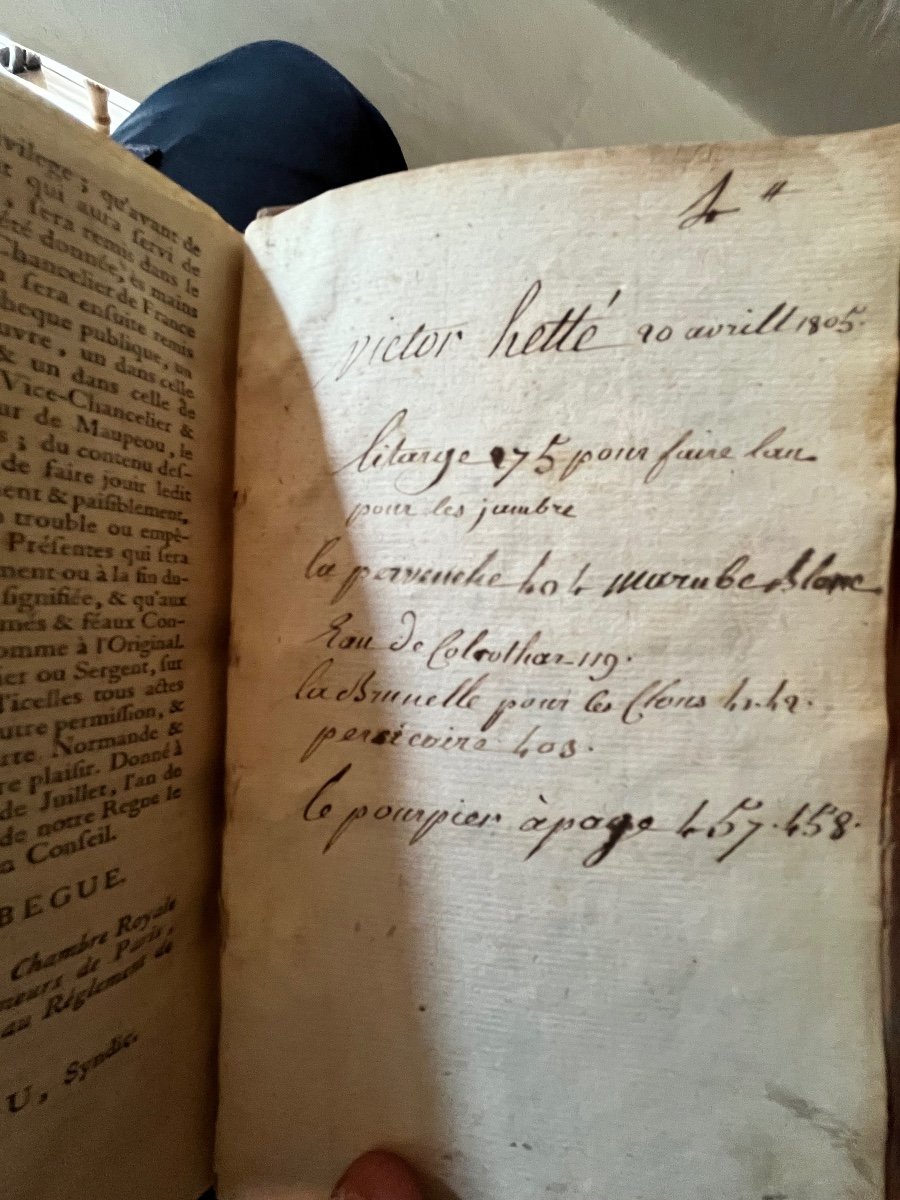 vilege; qu'avant de
qui aura ſervi de
, ſera remis dans le
été donnée, ès mains
Chancelier de France
ſera enſuite remis
theque publique, un
uvre, un dans celle
& un dans celle de
Vice-Chancelier &
ur de Maupeou, le
s; du contenu deſ-
de faire jouir ledit
ent & paiſiblement,
trouble ou empê-
Préſentes qui ſera
ment ou à la fin du-
ſignifiée, & qu'aux
més & féaux Con-
omme à l'Original.
ier ou Sergent, ſur
d'icelles tous actes
utre permiſſion, &
rte Normande &
re plaiſir. Donné à
de Juillet, l'an de
de notre Regne le
n Conſeil.
BEGUE.
Chambre Royale
meurs de Paris,
au Réglement de
U, Syndic.
4 "
victor hetté 20 avrill 1805.
litarge 275 pour faire lau
pour les jambre
la pervenche 404 marube Blanc
Eau de Colcothar 119.
la Brunelle pour les Clous 41.42.
persicaire 403.
le pourpier à page 457.458.